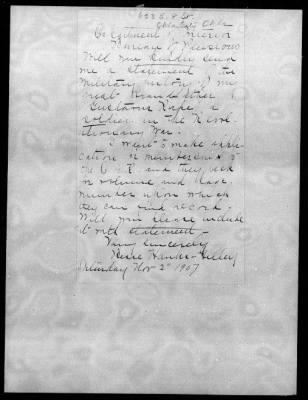 St.
Okla
Department of Interior
Bureau of Pensions
Will you kindly send
me a statement of the
Military history of my
Great Grandfather
Gustavus Rape, a
soldier in the Revol
utionary War.
I want to make appli
cation for membership to
the D.A.R. and they ask
for volume and page
number upon which
they can find record.
Will you please include
it with statement,
Very Sincerely
Saturday Nov 2" 1907